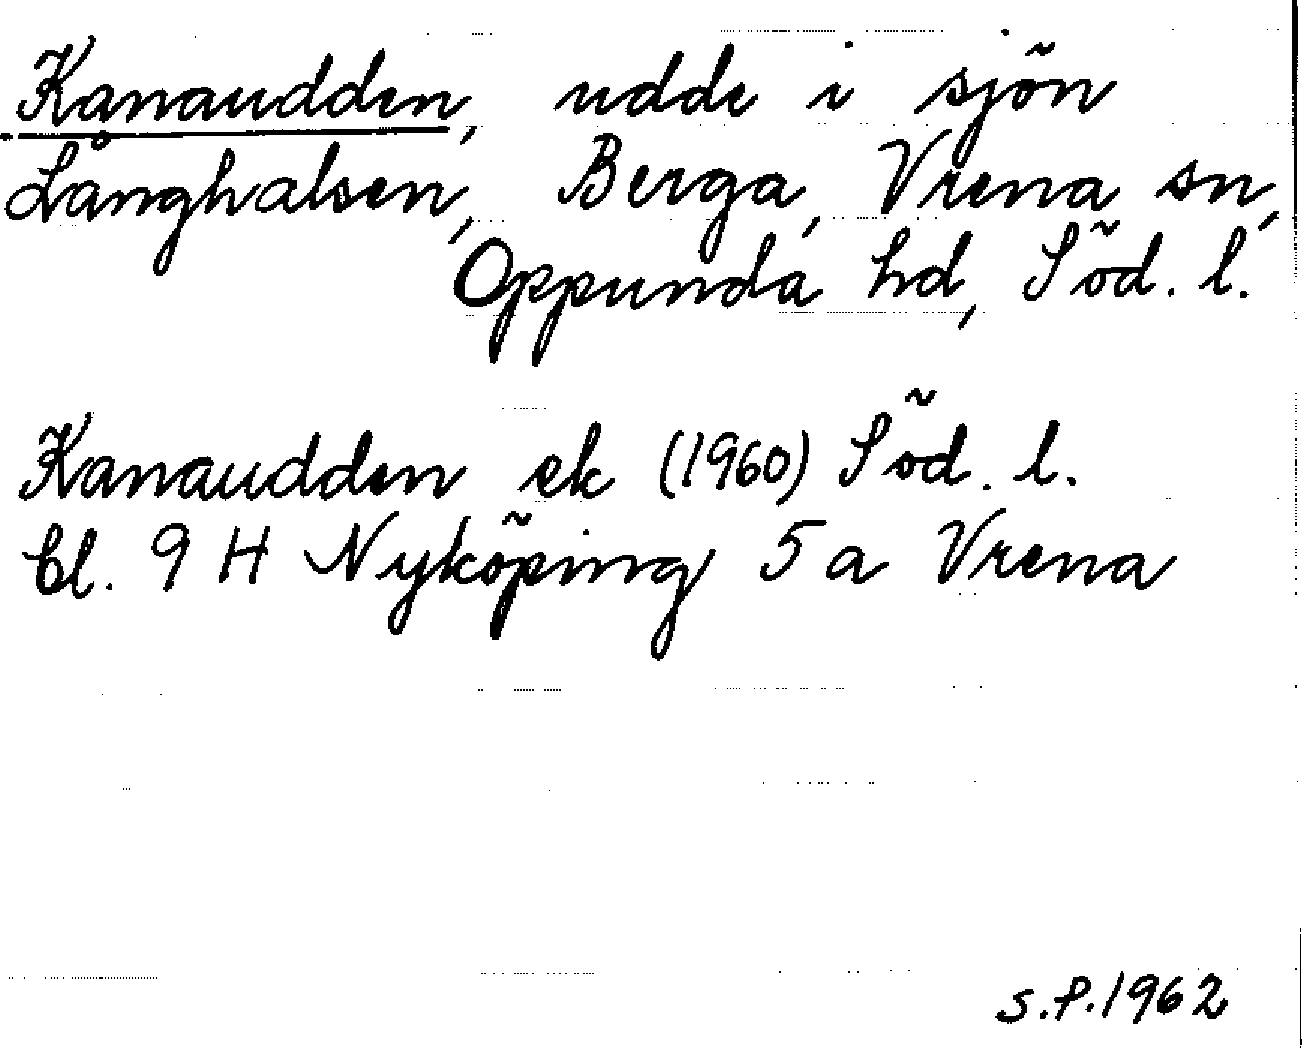 Kanaudden, udde i sjön
Långhalsen, Berga, Vrena sn,
Oppunda hd, Söd. l.
Kanaudden ek (1960) Söd. l.
bl. 9 H Nyköping 5 a Vrena
S.P.1962